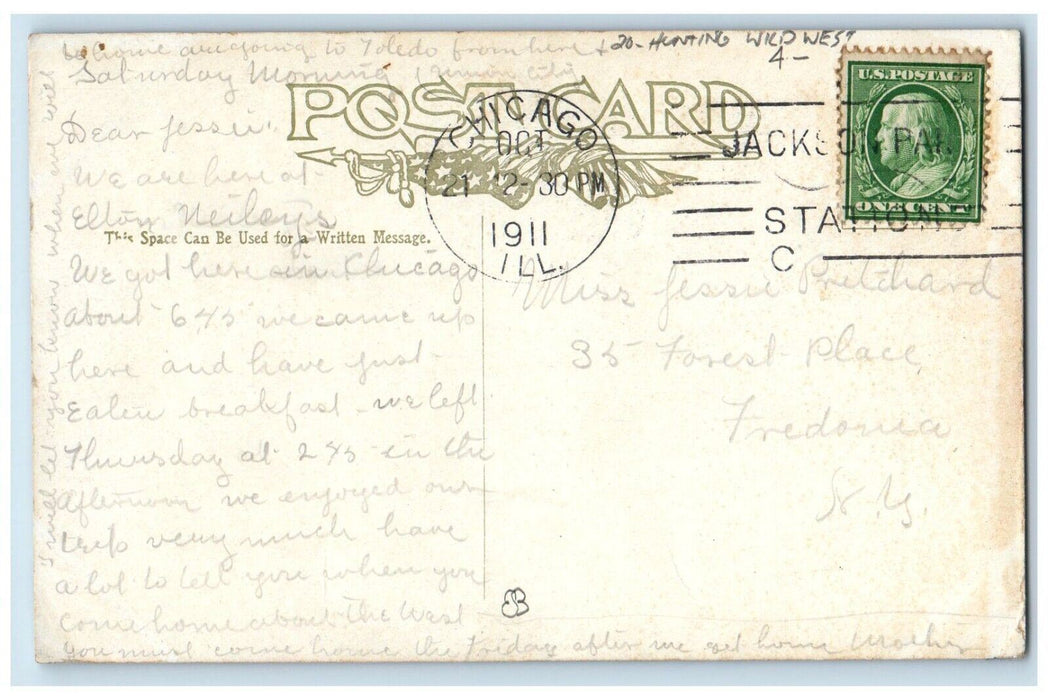 be home are going to Toledo from here +
20- HUNTING WILD WEST
4-
Saturday Morning Union City
POST CARD
U.S. POSTAGE
ONE CENT
CHICAGO
OCT
21 12-30 PM
1911
ILL.
JACKSON PARK
STATION
C
This Space Can Be Used for a Written Message.
Dear Jessie:
We are here at
Elton Neiley's
We got here in Chicago
about 645 we came up
here and have just
Eaten breakfast - we left
Thursday at 245 in the
afternoon we enjoyed our
trip very much have
a lot to tell you when you
come home about the West -
you must come home the Friday after we get home Mother
I will let you know when we will
Miss Jessie Pritchard
35 Forest Place
Fredonia
N.Y.